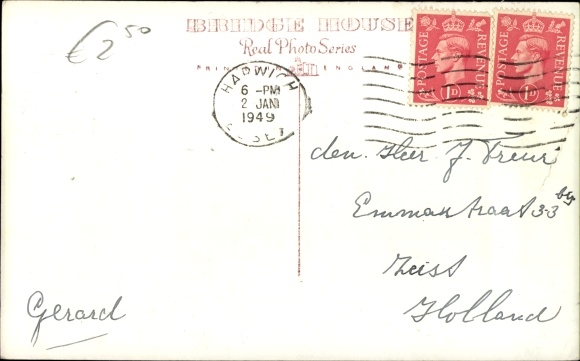 €2 50
BRIDGE HOUSE
Real Photo Series
PRINTED IN ENGLAND
POSTAGE REVENUE
1D
POSTAGE REVENUE
1D
HARWICH
6 - PM
2 JAN
1949
ESSEX
den Heer J. Treur
Emmastraat 33 bis
Zeist
Holland
Gerard